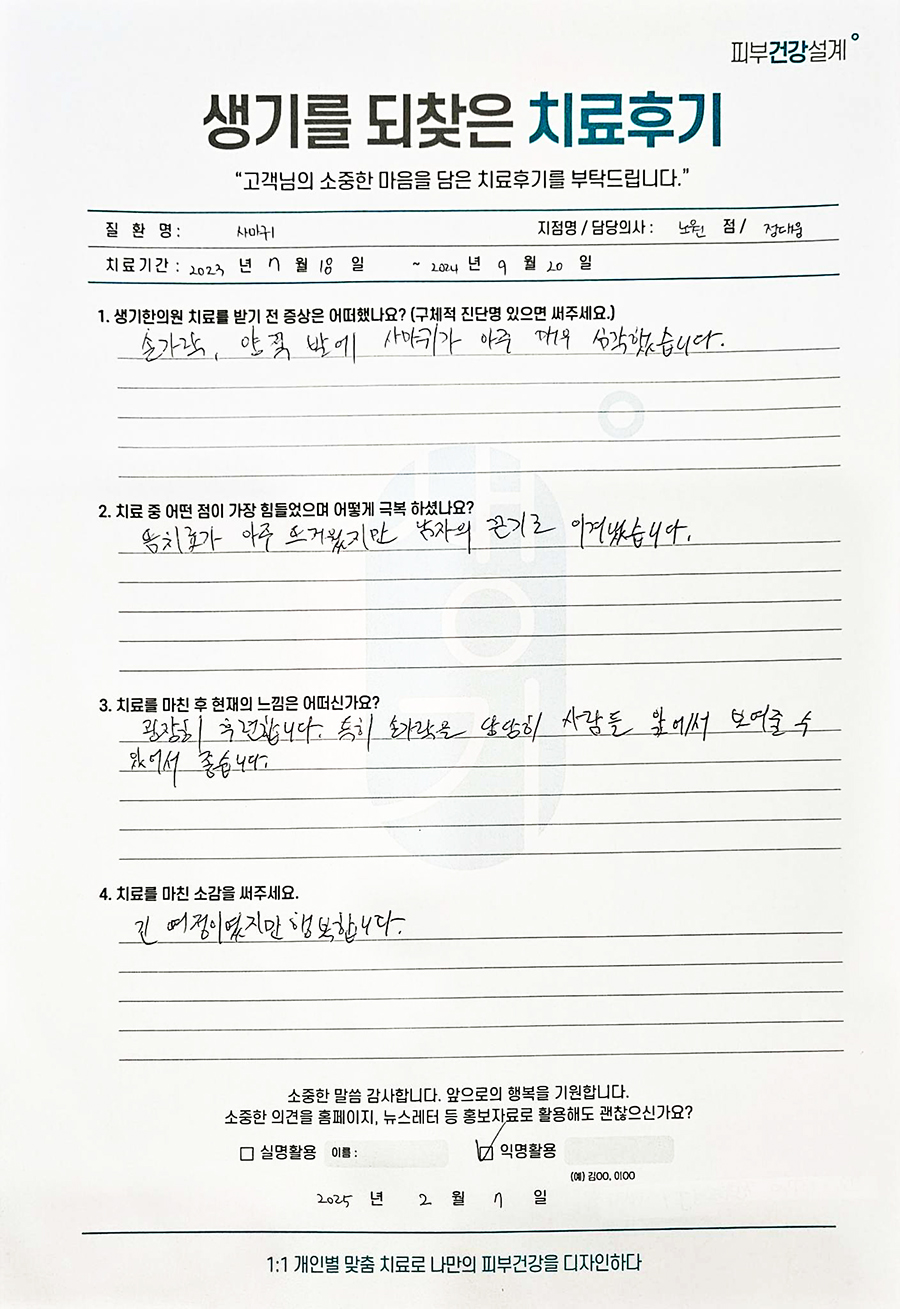 피부건강설계
생기를 되찾은 치료후기
“고객님의 소중한 마음을 담은 치료후기를 부탁드립니다.”
질 환 명 : 사마귀 지점명 / 담당의사 : 노원 점 / 정대웅
치료기간 : 2023 년 7 월 18 일 ~ 2024 년 9 월 20 일
1. 생기한의원 치료를 받기 전 증상은 어떠했나요? (구체적 진단명 있으면 써주세요.)
손가락, 양쪽 발에 사마귀가 아주 매우 심각했습니다.
2. 치료 중 어떤 점이 가장 힘들었으며 어떻게 극복 하셨나요?
뜸치료가 아주 뜨거웠지만 남자의 끈기로 이겨냈습니다.
3. 치료를 마친 후 현재의 느낌은 어떠신가요?
굉장히 후련합니다. 특히 손가락을 당당히 사람들 앞에서 보여줄 수
있어서 좋습니다.
4. 치료를 마친 소감을 써주세요.
긴 여정이였지만 행복합니다.
소중한 말씀 감사합니다. 앞으로의 행복을 기원합니다.
소중한 의견을 홈페이지, 뉴스레터 등 홍보자료로 활용해도 괜찮으신가요?
실명활용 이름 : 익명활용
(예) 김OO, 이OO
2025 년 2 월 7 일
1:1 개인별 맞춤 치료로 나만의 피부건강을 디자인하다